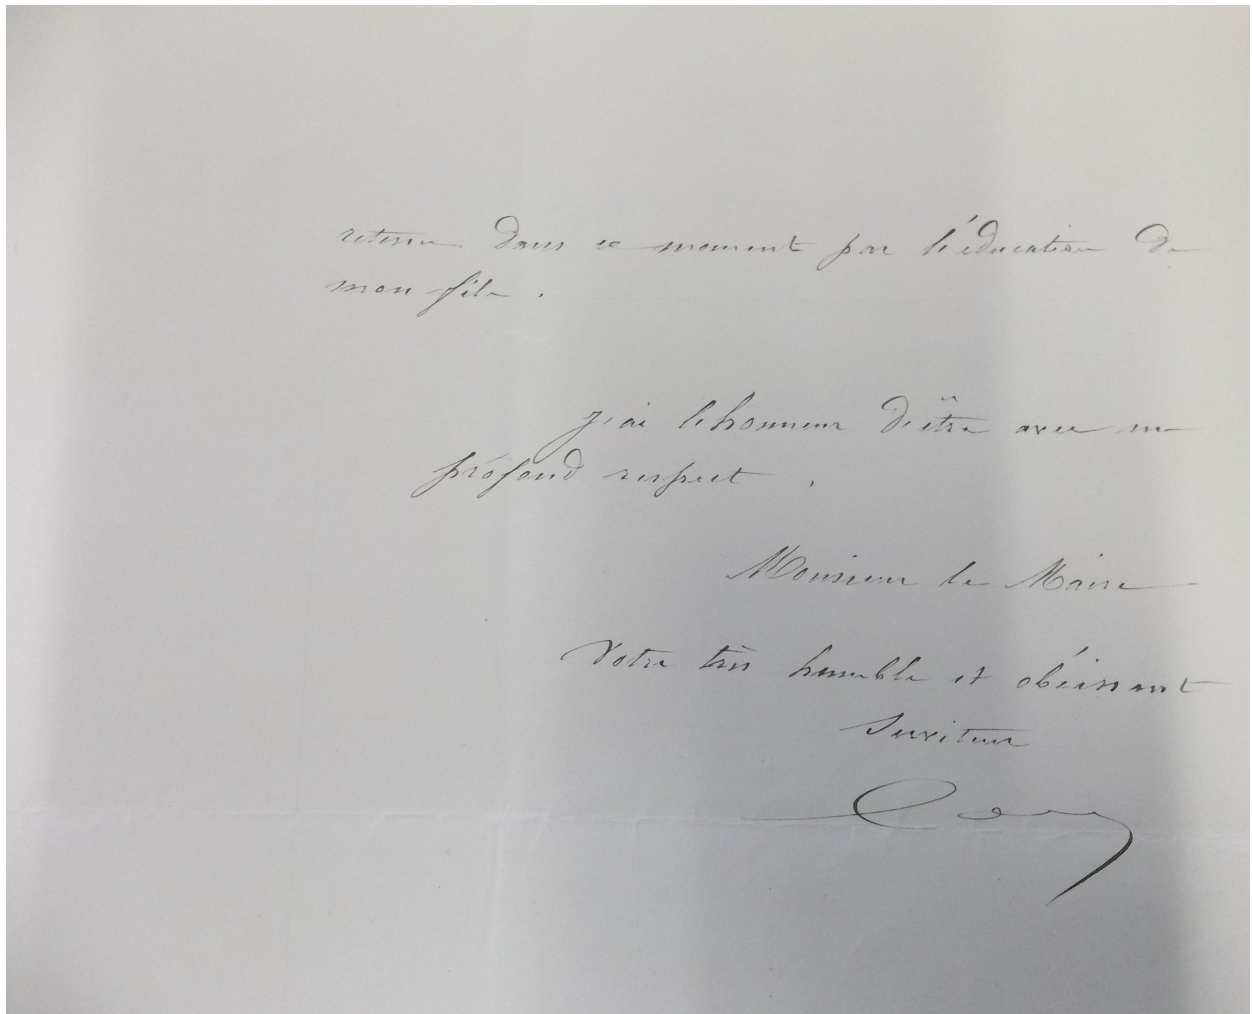 retenu dans ce moment par l'éducation de
mon fils.
J'ai l'honneur d'être avec un
profond respect,
Monsieur le Maire
Votre très humble et obéissant
Serviteur